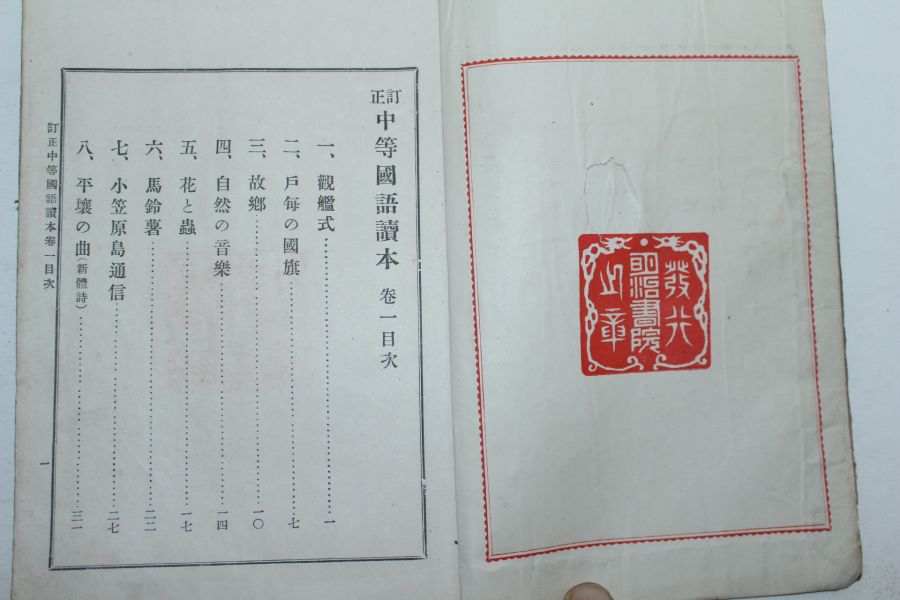 發行
明治書院
之章
訂正中等國語讀本 卷一目次
一、觀艦式……一
二、戶每の國旗……七
三、故鄕……一〇
四、自然の音樂……一四
五、花と蟲……一七
六、馬鈴薯……二二
七、小笠原島通信……二七
八、平壤の曲(新體詩)……三一
訂正中等國語讀本卷一目次
一